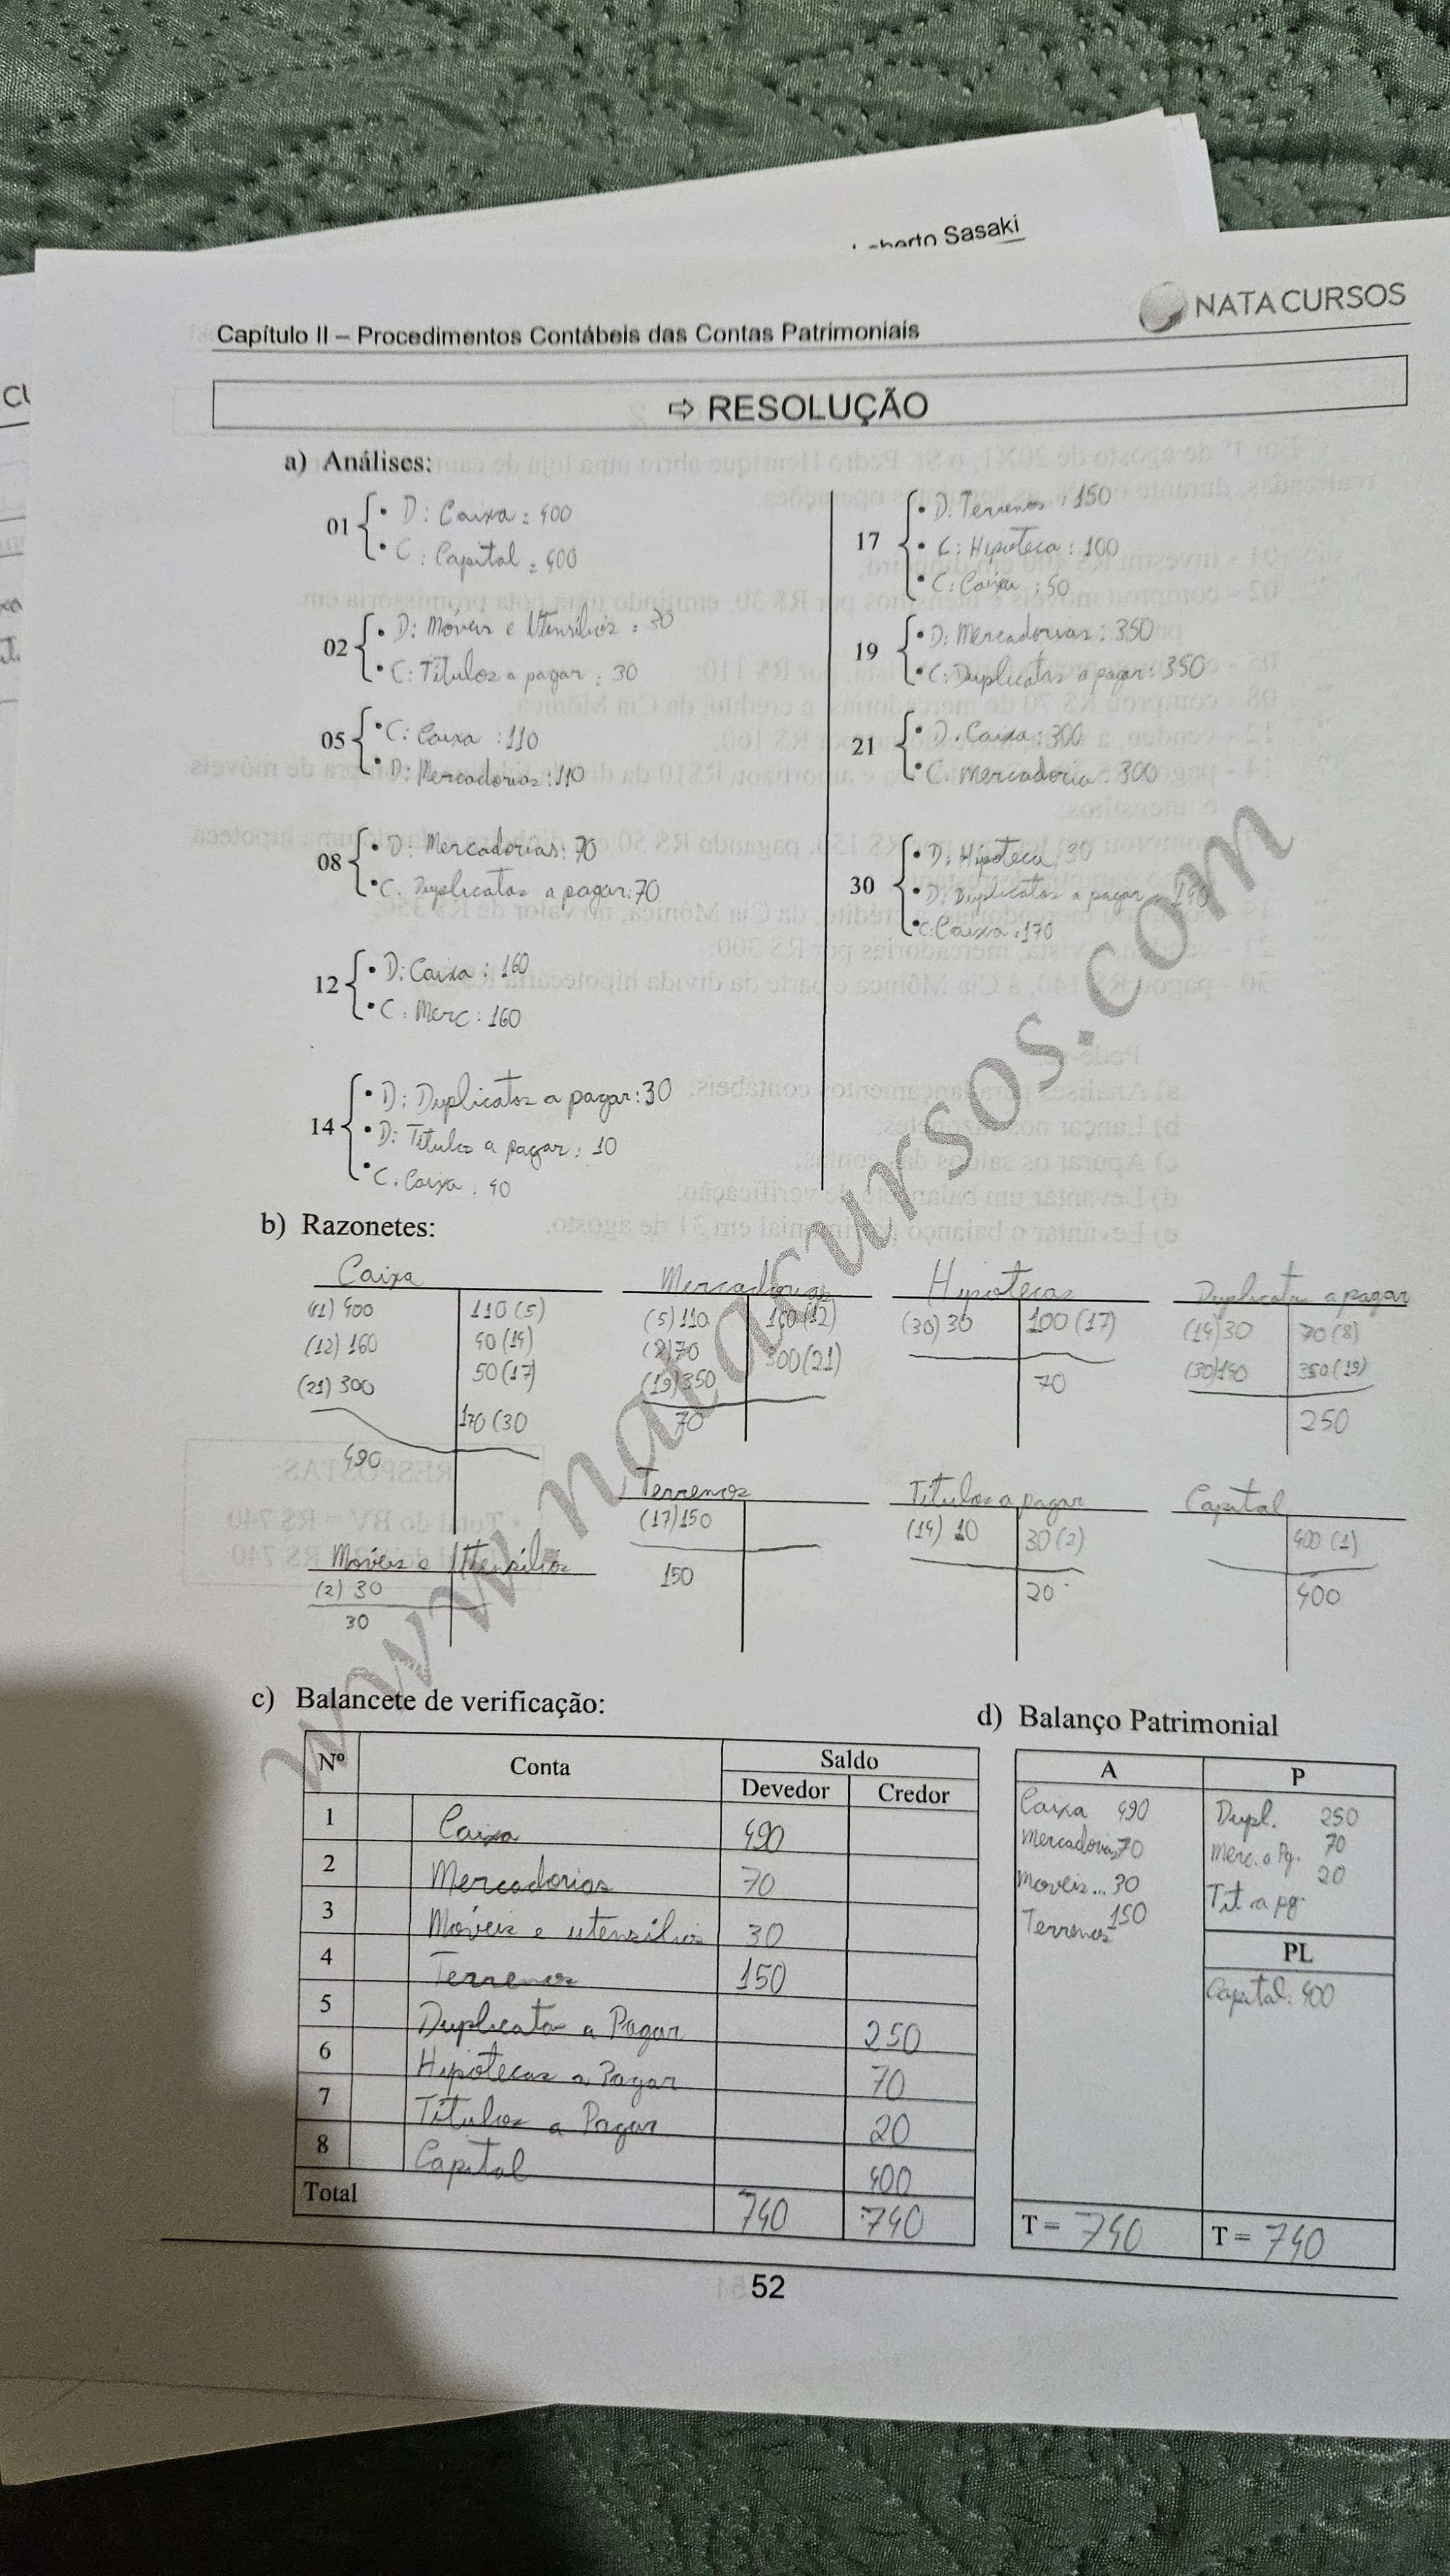 Roberto Sasaki
NATA CURSOS
Capítulo II – Procedimentos Contábeis das Contas Patrimoniais
⇨ RESOLUÇÃO
a) Análises:
01
• D: Caixa : 400
• C: Capital : 400
02
• D: Móveis e Utensílios : 30
• C: Títulos a pagar : 30
05
• C: Caixa : 110
• D: Mercadorias : 110
08
• D: Mercadorias: 70
• C. Duplicatas a pagar: 70
12
• D: Caixa : 160
• C: Merc : 160
14
• D: Duplicatas a pagar: 30
• D: Titulo a pagar : 10
• C. Caixa : 40
17
• D: Terrenos : 150
• C: Hipoteca : 100
• C: Caixa : 50
19
• D: Mercadorias : 350
• C: Duplicatas a pagar: 350
21
• D. Caixa : 300
• C. Mercadoria : 300
30
• D: Hipoteca : 30
• D: Duplicatas a pagar : 140
• C: Caixa : 170
b) Razonetes:
Caixa
(1) 400 110 (5)
(12) 160 40 (14)
(21) 300 50 (17)
170 (30
490
Mercadorias
(5) 110 160 (12)
(8) 70 300 (21)
(19) 350
70
Hipotecas
(30) 30 100 (17)
70
Duplicata a pagar
(14) 30 70 (8)
(30) 140 350 (19)
250
Móveis e Utensílios
(2) 30
30
Terrenos
(17) 150
150
Títulos a pagar
(14) 10 30 (2)
20
Capital
400 (1)
400
c) Balancete de verificação:
Nº Conta Saldo
Devedor Credor
1 Caixa 490
2 Mercadorias 70
3 Móveis e utensílios 30
4 Terrenos 150
5 Duplicata a Pagar 250
6 Hipotecas a Pagar 70
7 Títulos a Pagar 20
8 Capital 400
Total 740 740
d) Balanço Patrimonial
A P
Caixa 490 Dupl. 250
Mercadorias 70 Merc. a Pg. 70
Moveis... 30 Tit a pg. 20
Terrenos 150
PL
Capital: 400
T = 740 T = 740
52
www.natacursos.com